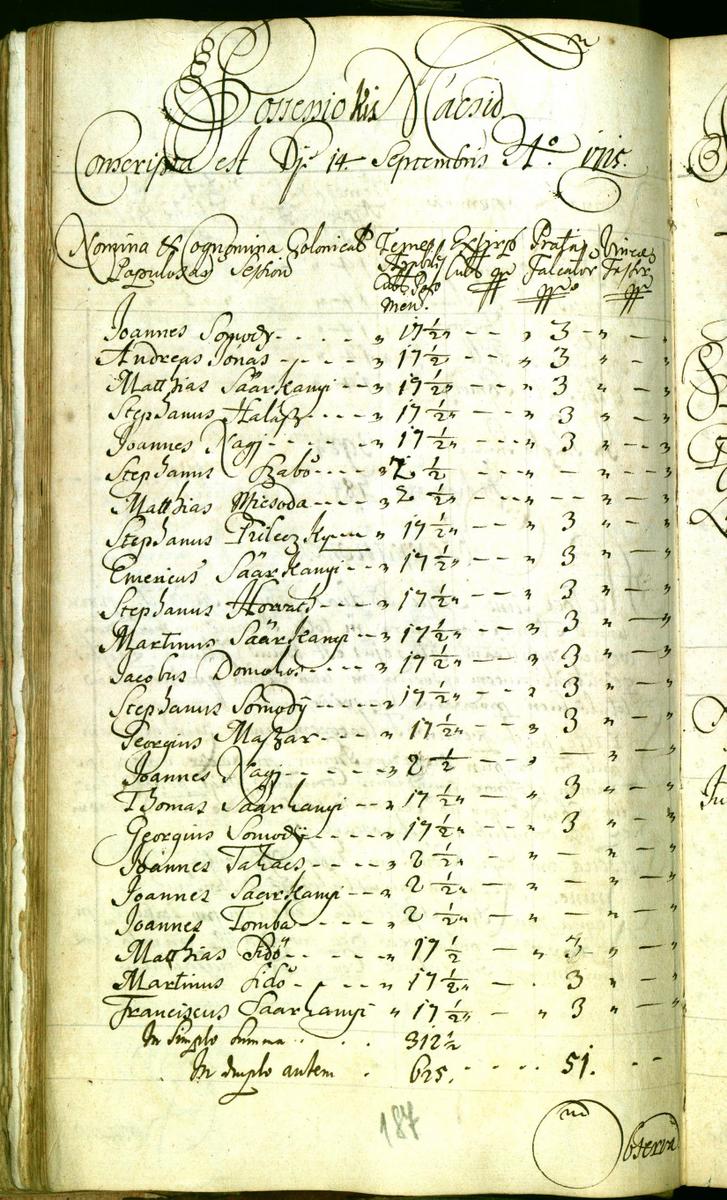 Possessio Kis Nacsid
Conscripta est Die 14. Septembris Ao. 1715.
Nomina & Cognomina Colonicales Terrę Exstirp Pratũ Vineę
Populosar Session Cub. Poso Cub. qr Falcator Fossor
men.
Joannes Somody - - - - „ 17 1/2 „ - - „ 3 „ - „
Andreas Jonas - - - - „ 17 1/2 „ - - „ 3 „ - „
Matthias Säärkanyi - - „ 17 1/2 „ - - „ 3 „ - „
Stephanus Halász - - - - „ 17 1/2 „ - - „ 3 „ - „
Joannes Nagj - - - - - „ 17 1/2 „ - - „ 3 „ - „
Stephanus Szabo - - - - „ 2 1/2 - - „ - „ - „
Matthias Micsoda - - - - „ 2 1/2 „ - - „ - - „ - „
Stephanus Prileczky „ 17 1/2 „ - - „ 3 „ - „
Emericus Säärkanyi - - „ 17 1/2 „ - - „ 3 „ - „
Stephanus Horvath - - - „ 17 1/2 „ - - „ 3 „ - „
Martinus Säärkanyi - - „ 17 1/2 „ - - „ 3 „ - „
Jacobus Domokos - - - - „ 17 1/2 „ - - „ 3 „ - „
Stephanus Somodÿ - - - - „ 17 1/2 „ - - „ 3 „ - „
Georgius Maszar - - - „ 17 1/2 „ - „ 3 „ - „
Joannes Nagj - - - - - „ 2 1/2 - „ - „ - „
Thomas Säärkanyi - - „ 17 1/2 „ - - „ 3 „ - „
Georgius Somodÿ - - - - „ 17 1/2 „ - - „ 3 „ - „
Joannes Takacs - - - - „ 2 1/2 „ - „ - „ - „
Joannes Saarkanyi - - „ 2 1/2 „ - „ - „ - „
Joannes Tomba - - - - „ 2 1/2 „ - „ - „ - „
Matthias Sidö - - - - - „ 17 1/2 - „ 3 „ - „
Martinus Sidö - - - - „ 17 1/2 „ - . 3 „ - „
Franciscus Saarkanyi „ 17 1/2 „ - „ 3 „ - „
In simplo summa . . . . 312 1/2
In duplo autem . 625. . . . . 51. . .
187
Observa